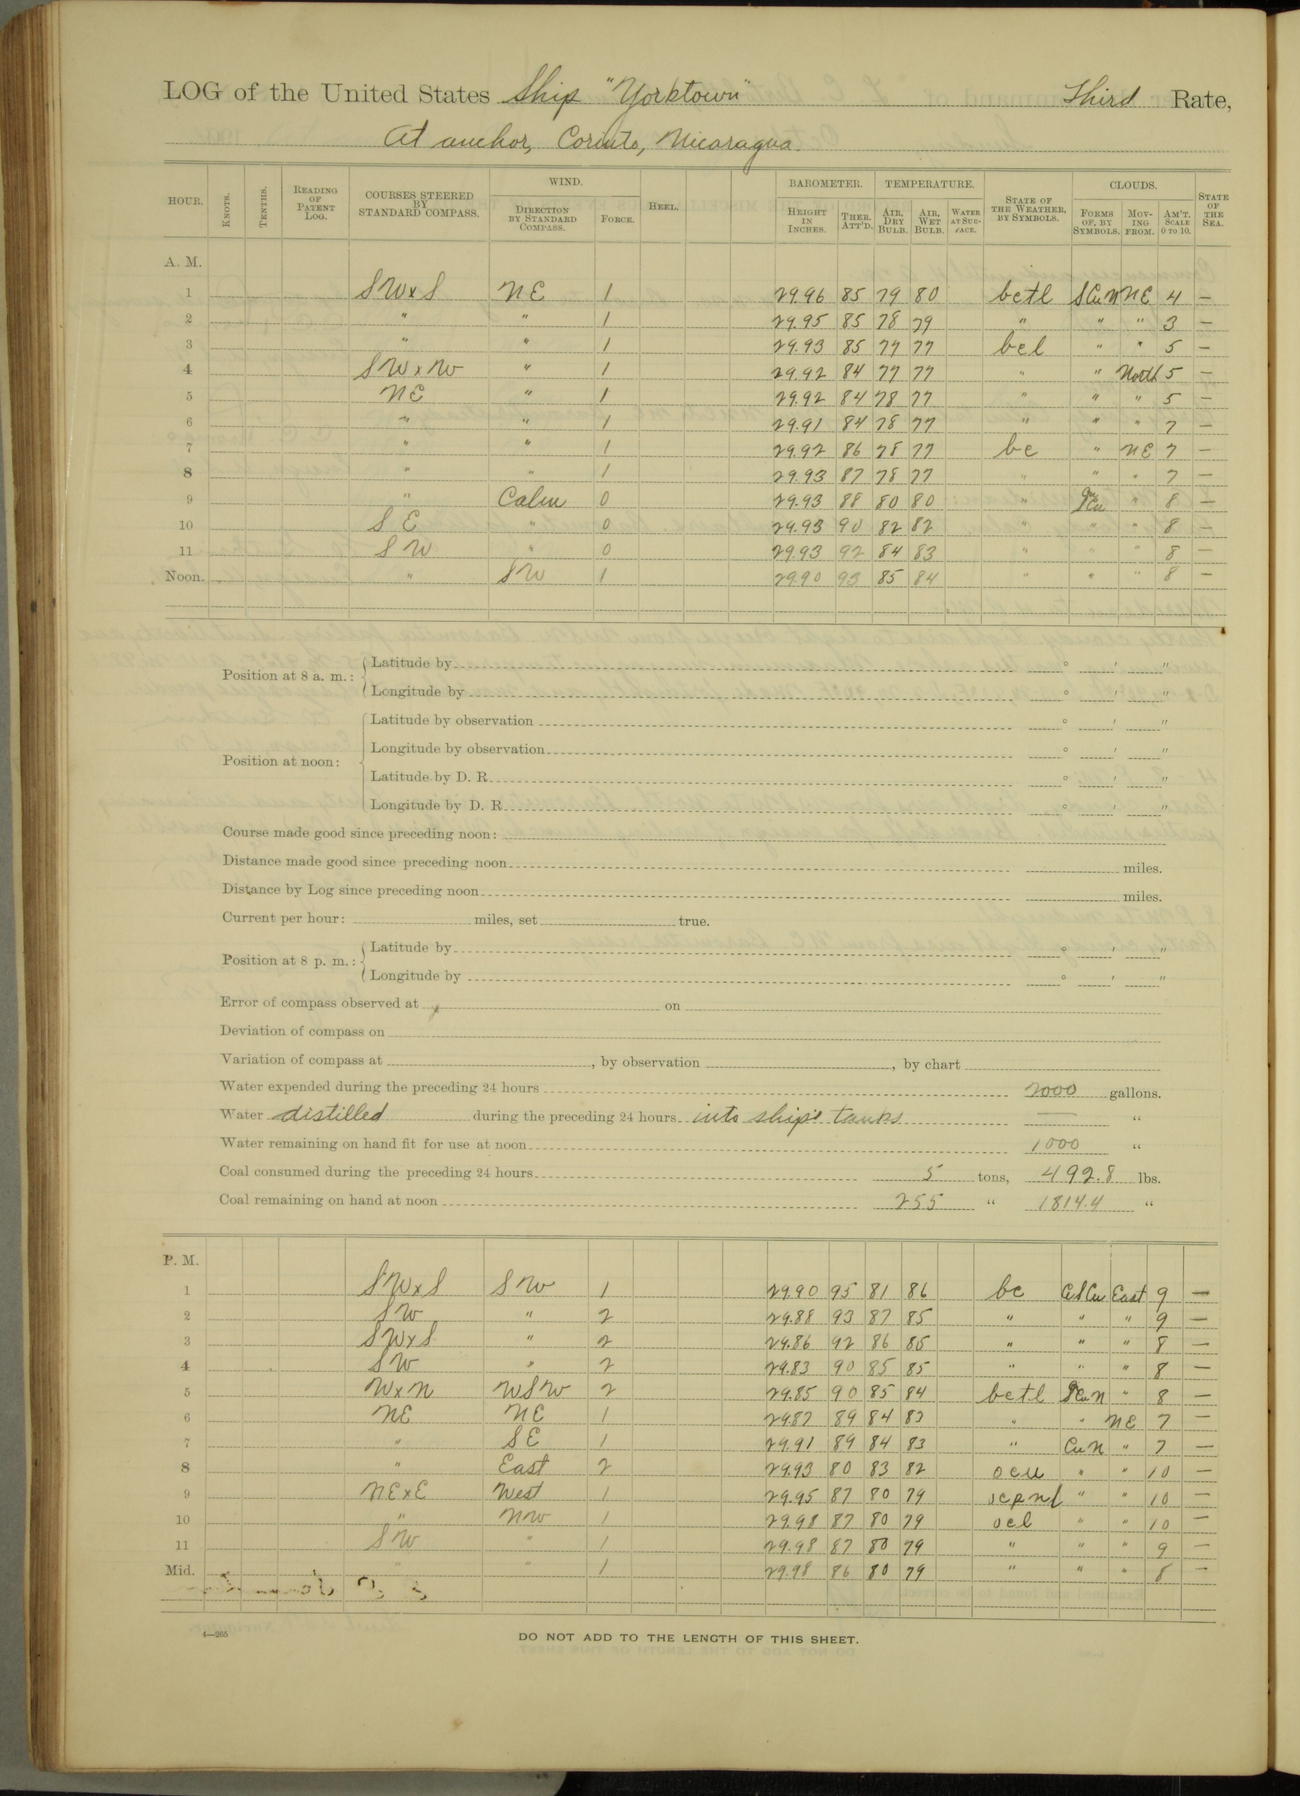 LOG of the United States Ship "Yorktown" Third Rate,
At anchor, Corinto, Nicaragua.
HOUR. KNOTS. TENTHS. READING OF PATENT LOG. COURSES STEERED BY STANDARD COMPASS. WIND. DIRECTION BY STANDARD COMPASS. FORCE. HEEL. BAROMETER. HEIGHT IN INCHES. THER. ATT'D. TEMPERATURE. AIR, DRY BULB. AIR, WET BULB. WATER AT SUR-FACE. STATE OF THE WEATHER, BY SYMBOLS. CLOUDS. FORMS OF, BY SYMBOLS. MOV-ING FROM. AM'T. SCALE 0 TO 10. STATE OF THE SEA.
A. M.
1 SWxS NE 1 29.96 85 79 80 bctl SCuN NE 4 —
2 " " 1 29.95 85 78 79 " " " 3 —
3 " " 1 29.93 85 77 77 bcl " " 5 —
4 SWxW " 1 29.92 84 77 77 " " North 5 —
5 NE " 1 29.92 84 78 77 " " " 5 —
6 " " 1 29.91 84 78 77 " " " 7 —
7 " " 1 29.92 86 78 77 bc " NE 7 —
8 " " 1 29.93 87 78 77 " " " 7 —
9 " Calm 0 29.93 88 80 80 " " 8 —
10 SE " 0 29.93 90 82 82 " " " 8 —
11 SW " 0 29.93 92 84 83 " " " 8 —
Noon. " SW 1 29.90 93 85 84 " " " 8 —
Position at 8 a. m.: Latitude by ° ' "
Longitude by ° ' "
Position at noon: Latitude by observation ° ' "
Longitude by observation ° ' "
Latitude by D. R. ° ' "
Longitude by D. R. ° ' "
Course made good since preceding noon:
Distance made good since preceding noon miles.
Distance by Log since preceding noon miles.
Current per hour: miles, set true.
Position at 8 p. m.: Latitude by ° ' "
Longitude by ° ' "
Error of compass observed at on
Deviation of compass on
Variation of compass at , by observation , by chart
Water expended during the preceding 24 hours 2000 gallons.
Water distilled during the preceding 24 hours into ship's tanks — "
Water remaining on hand fit for use at noon 1000 "
Coal consumed during the preceding 24 hours 5 tons, 492.8 lbs.
Coal remaining on hand at noon 255 " 1814.4 "
P. M.
1 SWxS SW 1 29.90 95 81 86 bc CiSCu East 9 —
2 SW " 2 29.88 93 87 85 " " " 9 —
3 SWxS " 2 29.86 92 86 85 " " " 8 —
4 SW " 2 29.83 90 85 85 " " " 8 —
5 WxN WSW 2 29.85 90 85 84 bctl SCuN " 8 —
6 NE NE 1 29.87 89 84 83 " " NE 7 —
7 " SE 1 29.91 89 84 83 " CuN " 7 —
8 " East 2 29.93 80 83 82 ocu " " 10 —
9 NExE West 1 29.95 87 80 79 " " 10 —
10 " NW 1 29.98 87 80 79 ocl " " 10 —
11 SW " 1 29.98 87 80 79 " " " 9 —
Mid. " " 1 29.98 86 80 79 " " " 8 —
4—265
DO NOT ADD TO THE LENGTH OF THIS SHEET.